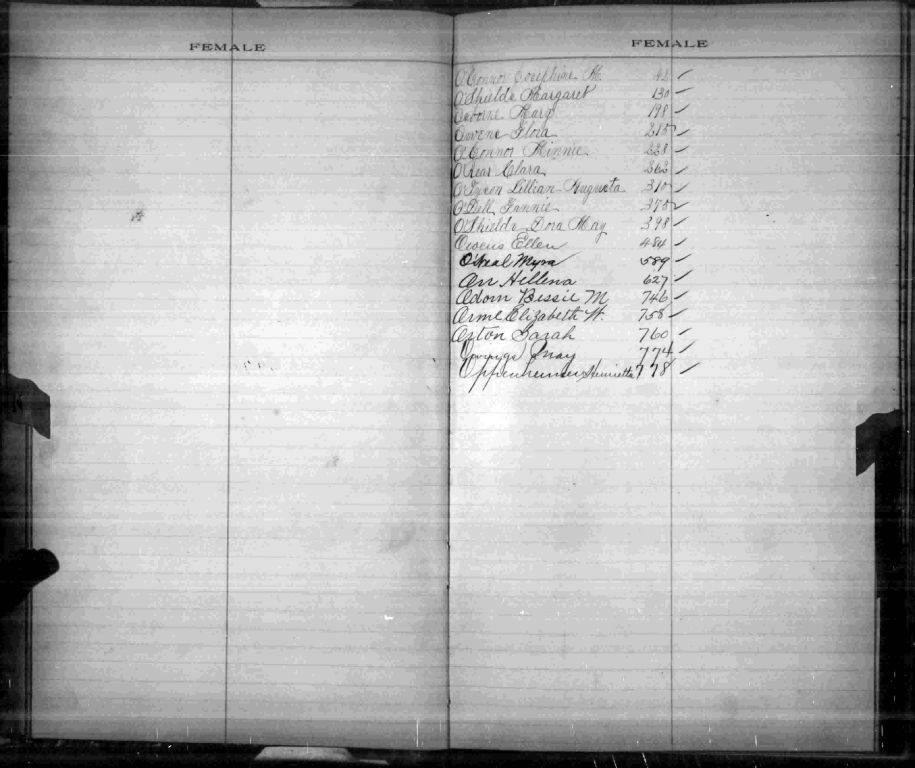 FEMALE
FEMALE
O'Connor Josephine M. 48
O'Shields Margaret 130
Osborne Mary 198
Owens Flora 215
O'Connor Minnie 228
O'Rear Clara 262
O' Lillian Augusta 310
O'Dell Fannie 375
O'Shields Dora May 398
Owens Ellen 484
O'Neal Myra 589
Orr Hellena 627
Odom Bessie M 746
Orme Elizabeth W. 758
Orton Sarah 760
May 774
Oppenheimer Henrietta 778